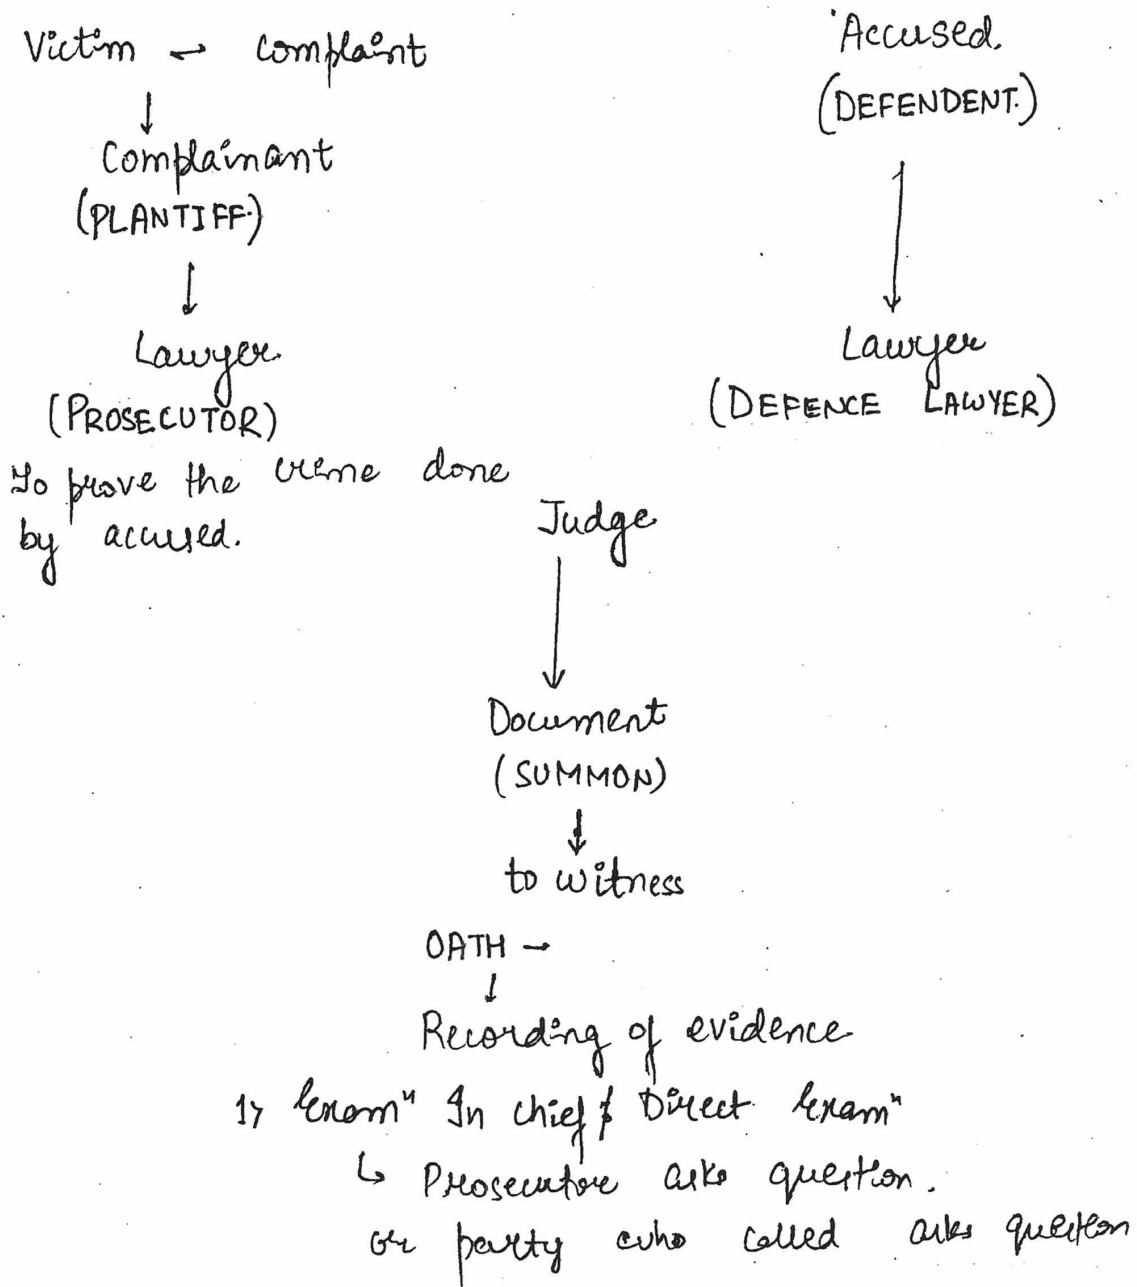 Victim → complaint
↓
Complainant
(PLANTIFF.)
↓
Lawyer.
(PROSECUTOR)
To prove the crime done
by accused.
Accused.
(DEFENDENT.)
↓
Lawyer
(DEFENCE LAWYER)
Judge
↓
Document
(SUMMON)
↓
to witness
OATH →
↓
Recording of evidence
1> Examⁿ In chief / Direct Examⁿ
↳ Prosecutor asks question.
or party who called asks question